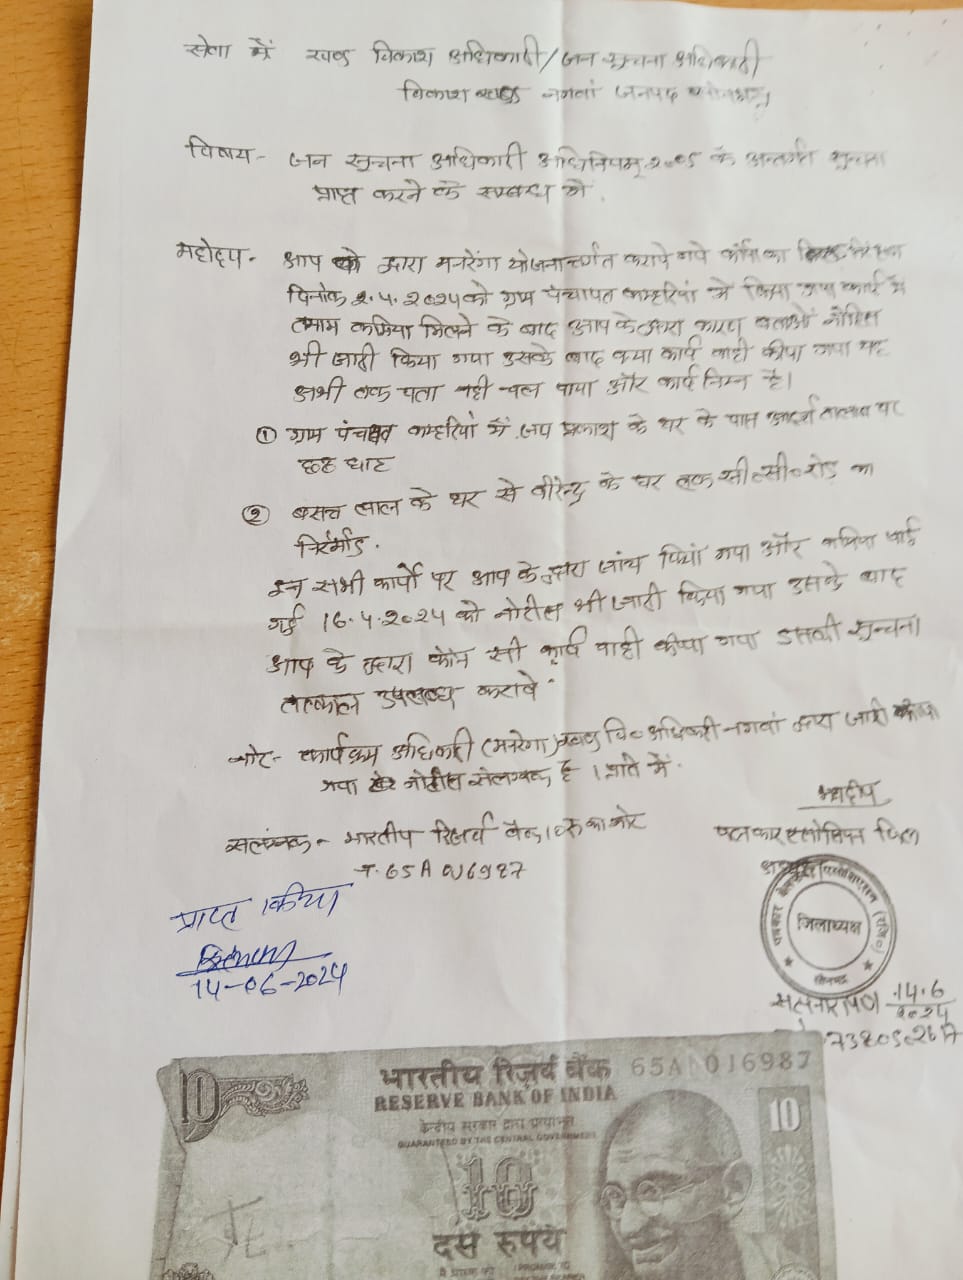 सेवा में खण्ड विकाश अधिकारी/जन सुचना अधिकारी
विकाश खण्ड नगवां जनपद सोनभद्र
विषय- जन सुचना अधिकारी अधिनियम २००५ के अन्तर्गत सुचना
प्राप्त करने के सम्बन्ध में.
महोदय- आप के द्वारा मनरेंगा योजनान्तर्गत कराये गये कार्यो का
दिनांक 2.4.2024 को ग्राम पंचायत कम्हरियां में किया गया कार्य में
तमाम कमिया मिलने के बाद आप के द्वारा कारण बताओं नोटिस
भी जारी किया गया उसके बाद क्या कार्य वाही कीया गया यह
अभी तक पता नही चल पाया और कार्य निम्न है।
① ग्राम पंचायत कम्हरियां में जय प्रकाश के घर के पास आदर्श तालाब पर
छठ घाट
② बसन्त लाल के घर से वीरेन्द्र के घर तक सी०सी०रोड का
निर्माड.
इन सभी कार्यो पर आप के द्वारा जांच किया गया और कमिया पाई
गई 16.4.2024 को नोटिस भी जारी किया गया उसके बाद
आप के द्वारा कौन सी कार्य वाही कीया गया उसकी सुचना
तत्काल उपलब्ध करावे
नोट- कार्यक्रम अधिकारी (मनरेगा) खण्ड वि० अधिकारी नगवां द्वारा जारी कीया
गया नोटिस संलग्नक है। प्रति में.
सलंग्नक- भारतीय रिजर्व बैंक
65A 016987
भवदीय
पत्रकार
प्राप्त किया
14-06-2024
जिलाध्यक्ष
सतनारायण 14.6
2024
भारतीय रिज़र्व बैंक 65A 016987
RESERVE BANK OF INDIA
केन्द्रीय सरकार द्वारा प्रत्याभूत
GUARANTEED BY THE CENTRAL GOVERNMENT
10
10
10
दस रुपये